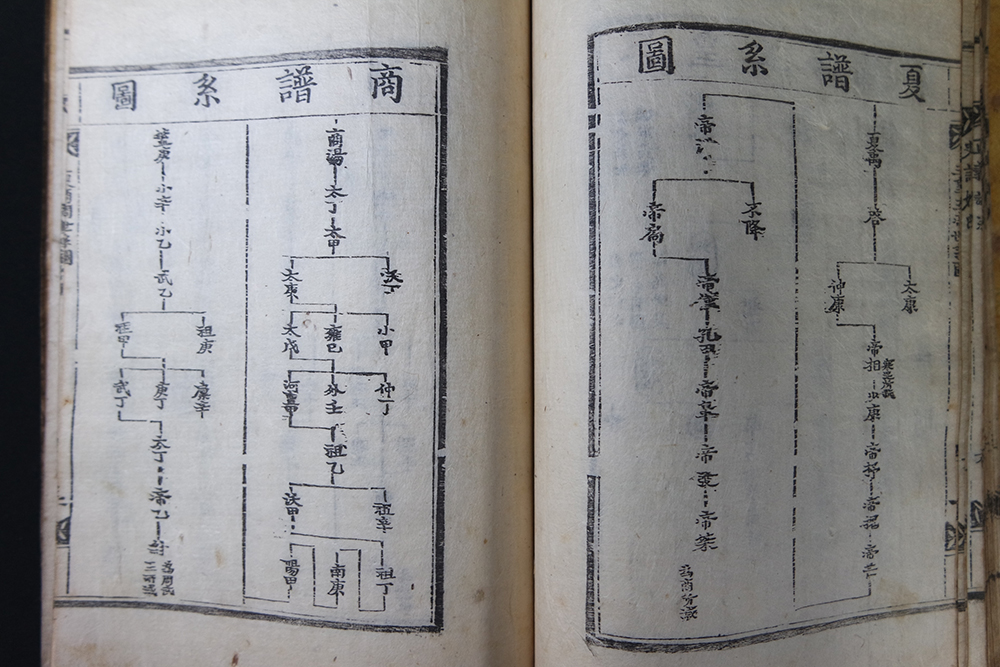 夏譜系圖
夏禹
啓
太康
仲康
帝相
少康
帝
不降
帝扃
孔甲
帝皐
帝發
帝桀
爲商所滅
商譜系圖
商湯
太丁
太甲
沃丁
太庚
小甲
雍己
太戊
仲丁
外壬
河亶甲
祖乙
祖辛
沃甲
祖丁
南庚
陽甲
盤庚
小辛
小乙
武乙
祖庚
祖甲
廩辛
庚丁
武丁
太丁
帝乙
紂